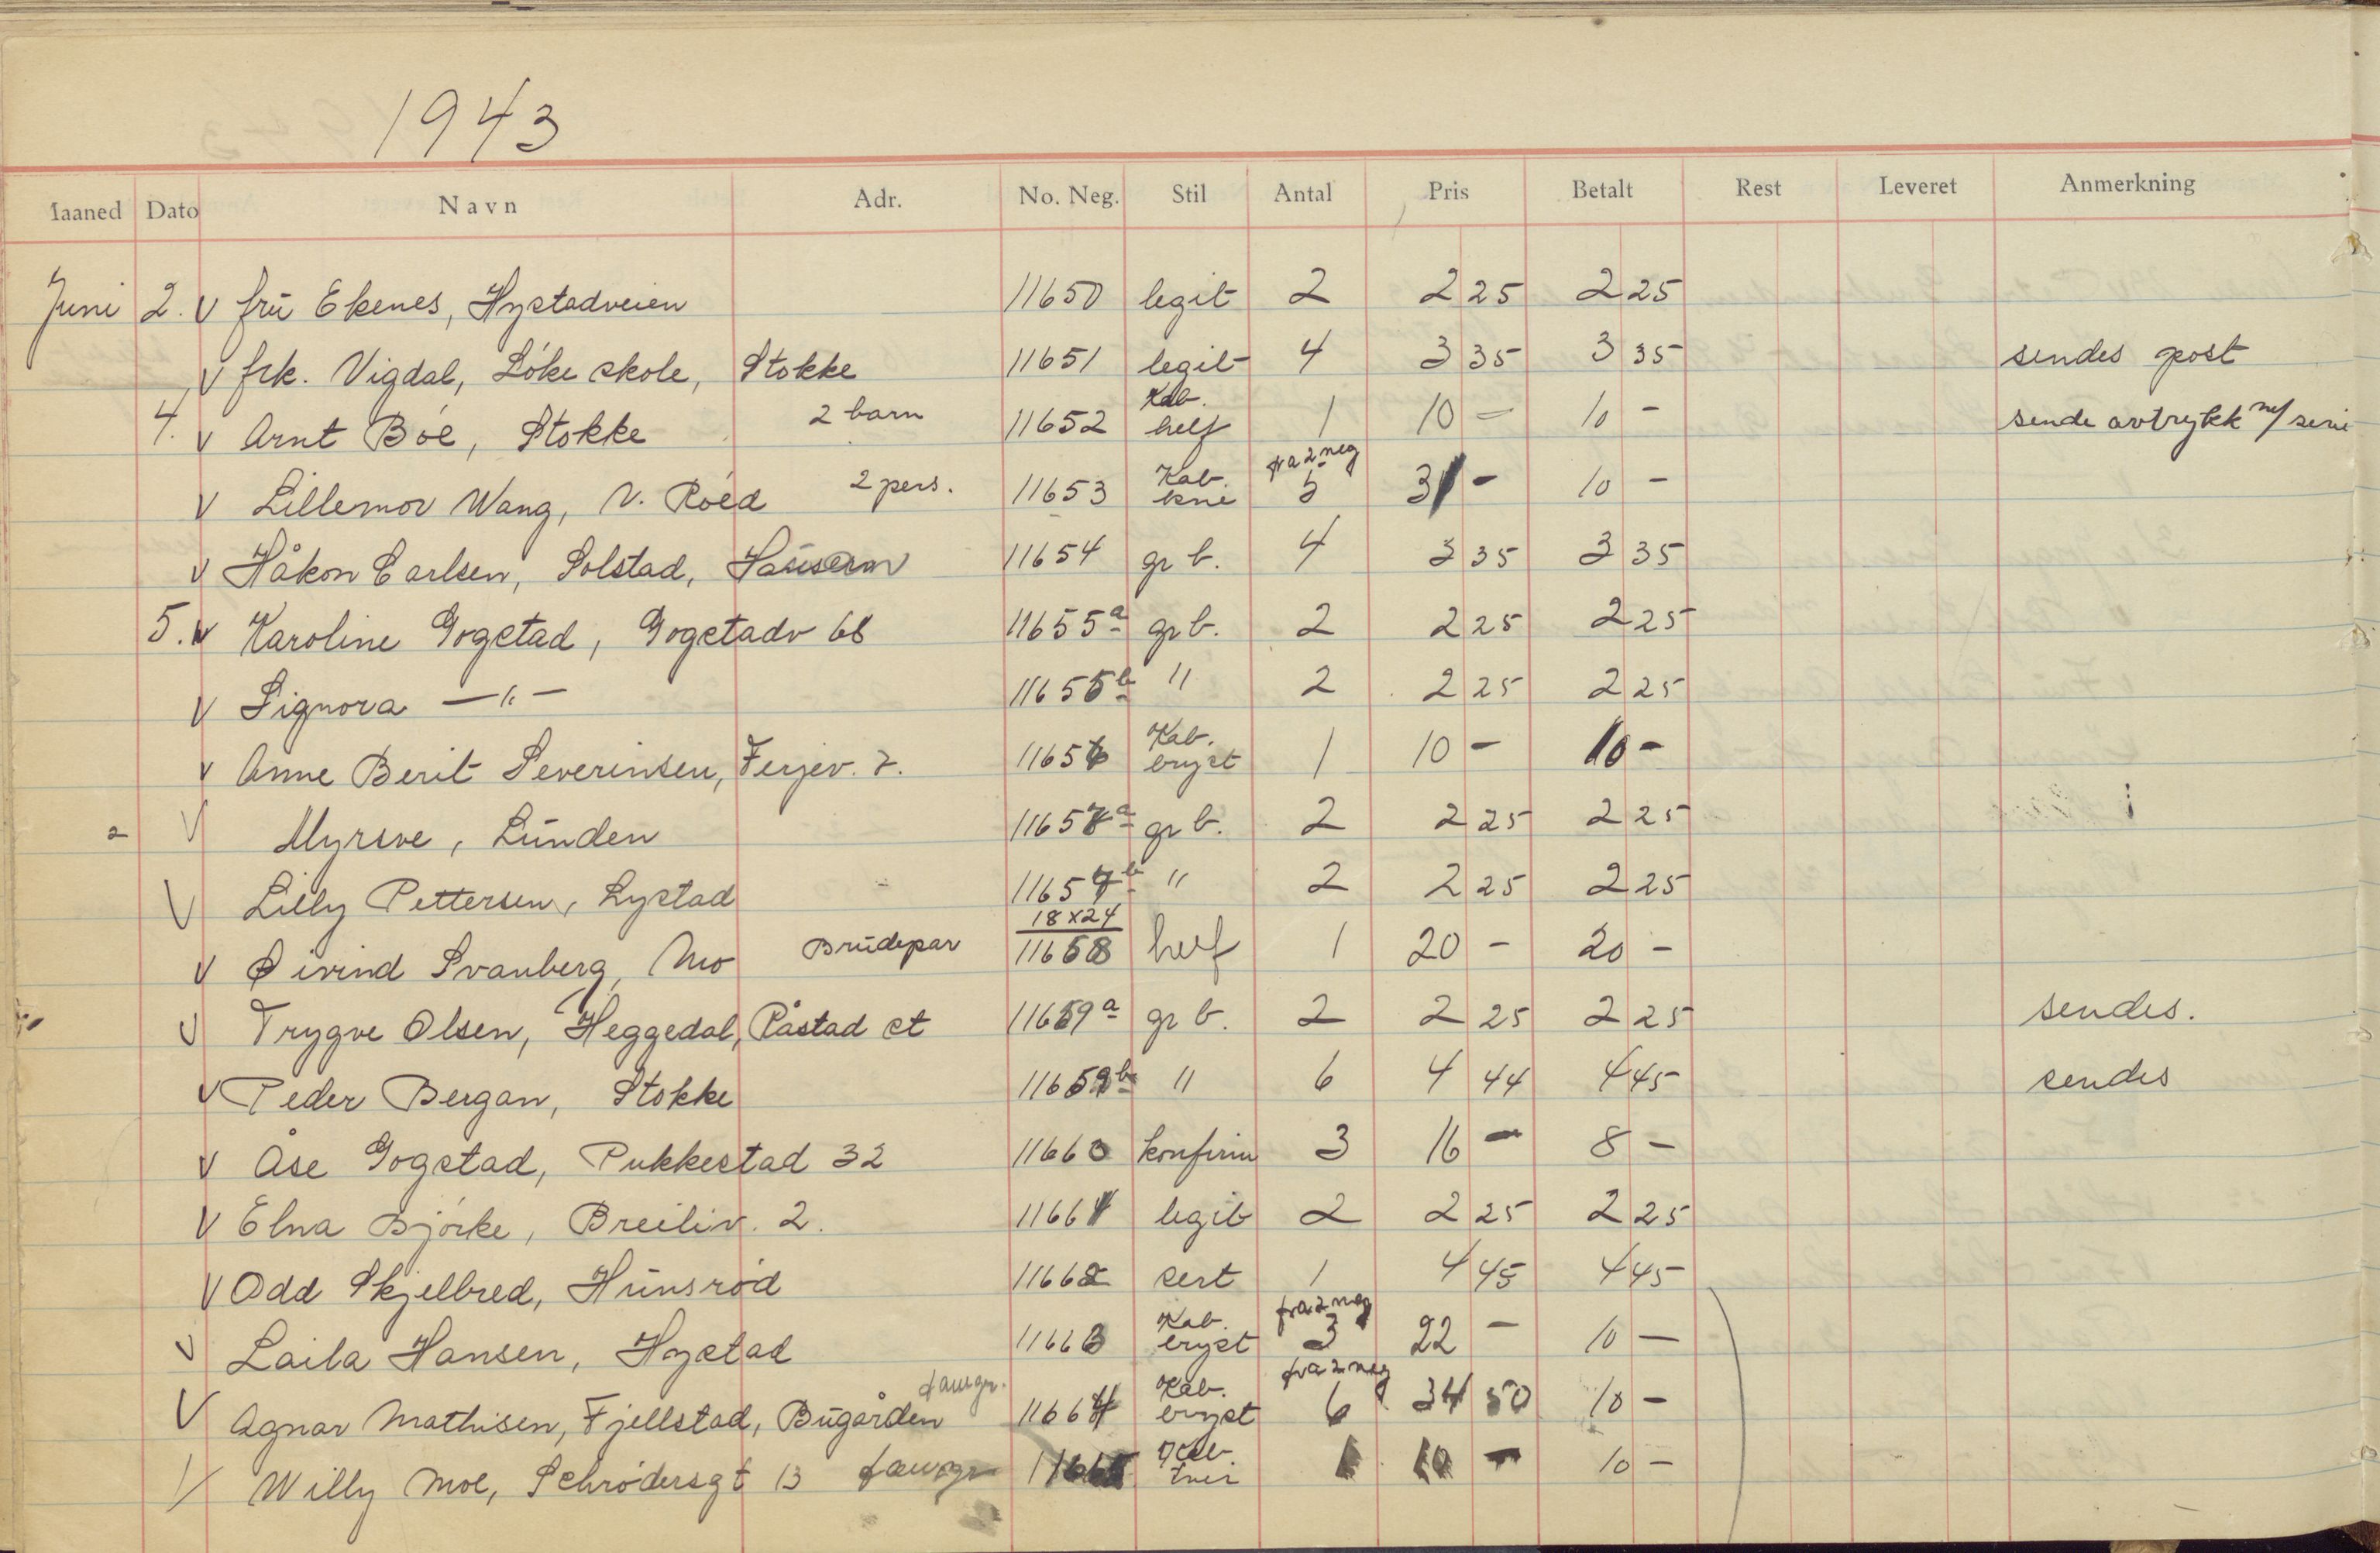 1943
Maaned Dato Navn Adr. No. Neg. Stil Antal Pris Betalt Rest Leveret Anmerkning
Juni 2. V frú Ekenes, Hystadveien 11650 legit 2 2 25 2 25
V frk. Vigdal, Løke skole, Stokke 11651 legit 4 3 35 3 35 sendes post
4. V Arnt Bøe, Stokke 2 barn 11652 Kab. helf 1 10 - 10 - sende avtrykk m/ serie
V Lillemor Wang, N. Røed 2 pers. 11653 Kab. kne fra 2 neg 5 31 - 10 -
V Håkon Carlsen, Solstad, 11654 gr b. 4 3 35 3 35
5. V Karoline Gogstad, Gogstadv 68 11655a gr b. 2 2 25 2 25
V Signora —"— 11655b " 2 2 25 2 25
V Anne Berit Severinsen, Ferjev. 7. 11656 Kab. bryst 1 10 - 10 -
2 V Myrsve, Lúnden 11657a gr b. 2 2 25 2 25
V Lilly Pettersen, Lystad 11657b " 2 2 25 2 25
V Øivind Svanberg, Mo Brúdepar 18x24 11658 helf 1 20 - 20 -
V Trygve Olsen, Heggedal, Råstad st 11659a gr b. 2 2 25 2 25 sendes.
V Peder Bergan, Stokke 11659b " 6 4 44 4 45 sendes
V Åse Gogstad, Pukkestad 32 11660 konfirm 3 16 - 8 -
V Elna Bjørke, Breiliv. 2. 11661 legit 2 2 25 2 25
V Odd Skjelbred, Húnsrød 11662 sert 1 4 45 4 45
V Laila Hansen, Hystad 11663 Kab. bryst fra 2 neg 3 22 - 10 -
V Agnar Mathisen, Fjellstad, Búgården famgr. 11664 Kab. bryst fra 2 neg 6 34 50 10 -
V Willy Moe, Schrødersgt 13 famgr 11665 Kab. 1 10 - 10 -